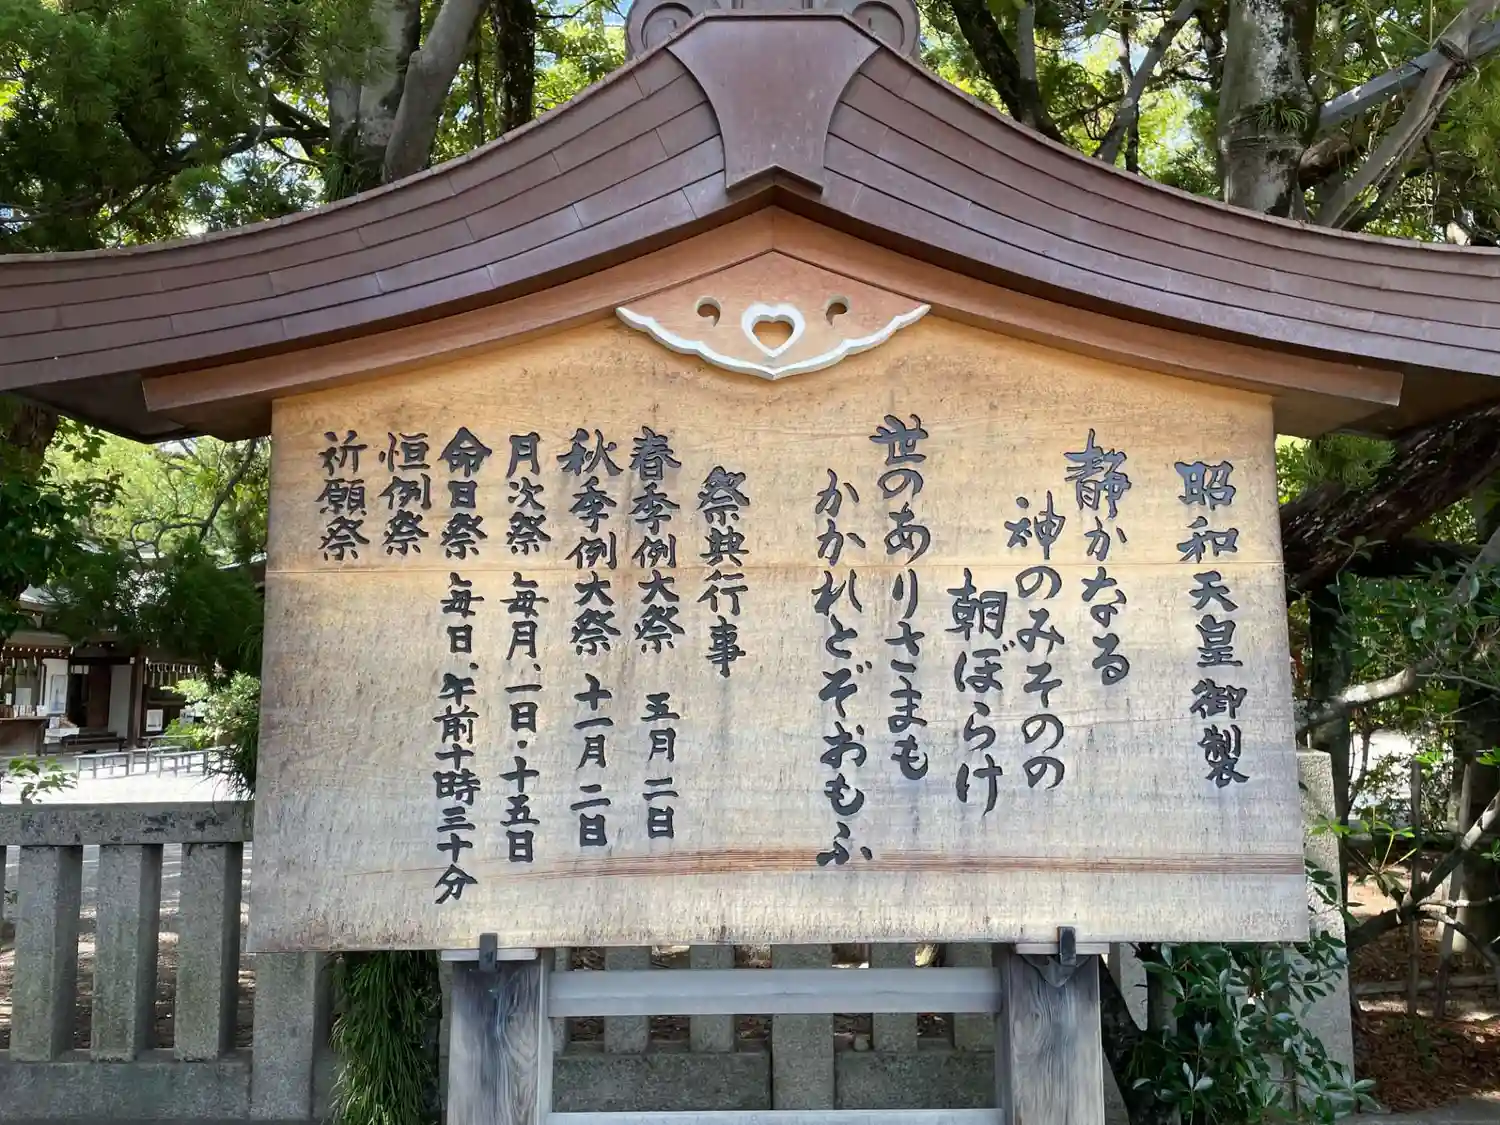 昭和天皇御製
静かなる
神のみそのの
朝ぼらけ
世のありさまも
かかれとぞおもふ
祭典行事
春季例大祭 五月二日
秋季例大祭 十一月二日
月次祭 毎月、一日・十五日
命日祭 毎日、午前十時三十分
恒例祭
祈願祭